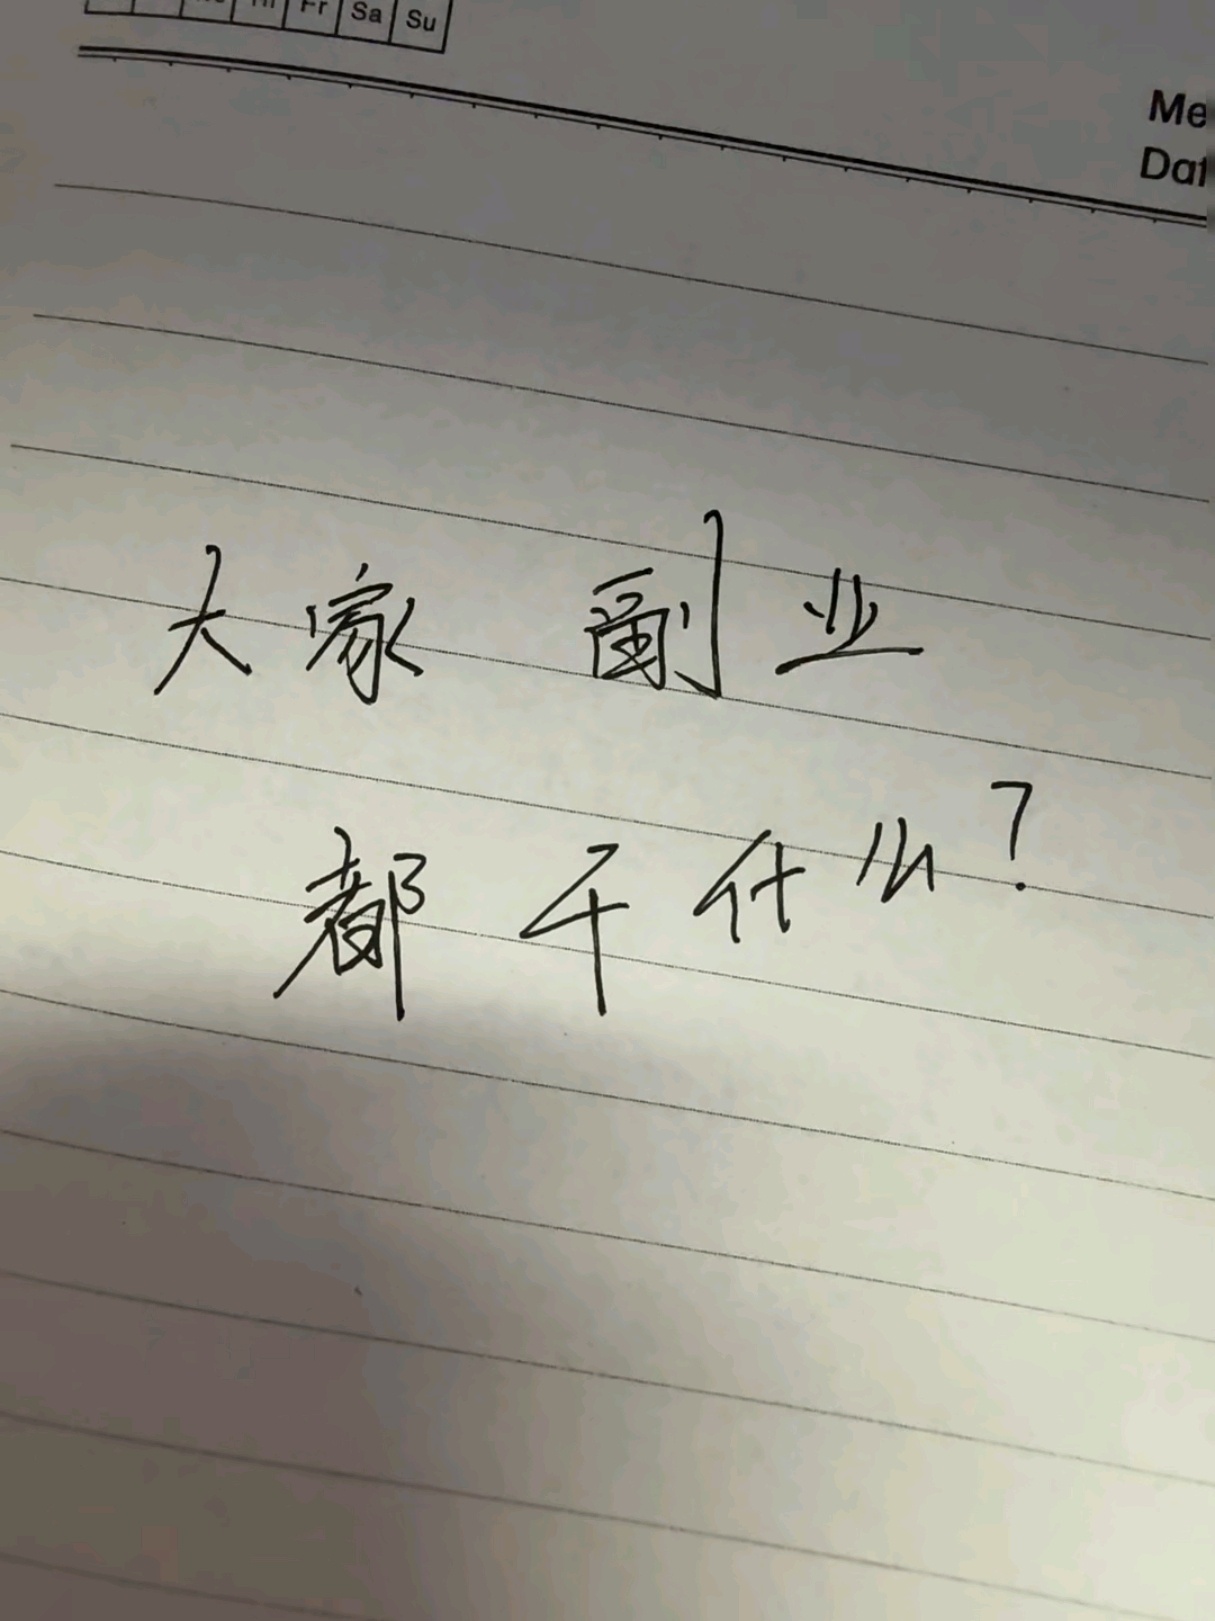 Fr Sa Su
Me
Dat
大家 副业
都干什么?